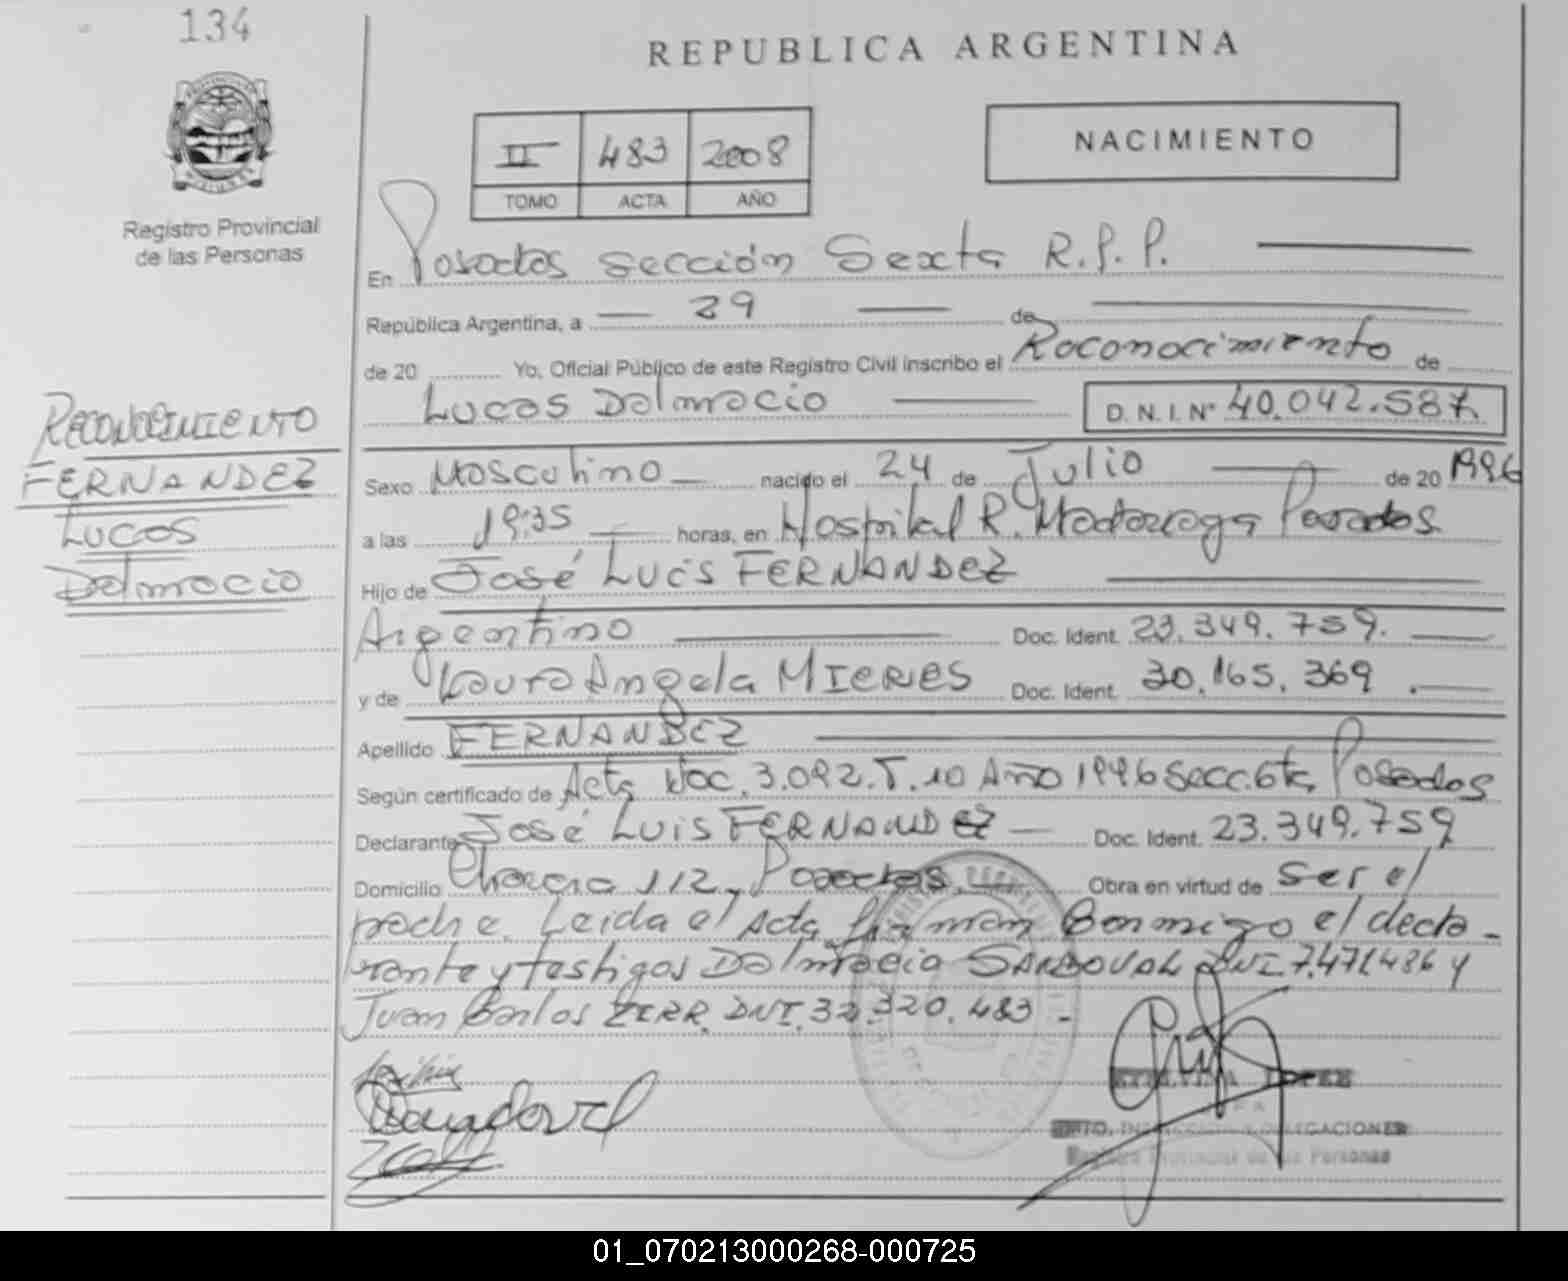 134
REPUBLICA ARGENTINA
II 483 2008
TOMO ACTA AÑO
NACIMIENTO
Registro Provincial
de las Personas
En Posadas sección Sexta R.P.P.
República Argentina, a 29 de
de 20 Yo, Oficial Público de este Registro Civil inscribo el Reconocimiento de
Lucas Dalmacio D.N.I.N° 40.042.587
RECONOCIMIENTO
FERNANDEZ
Lucas
Dalmacio
Sexo Masculino nacido el 24 de Julio de 20 1996
a las 19:35 horas, en Hospital R. Madariaga Posadas
Hijo de José Luis FERNANDEZ
Argentino Doc. Ident. 23.349.759.
y de Laura Angela MIERES Doc. Ident. 30.165.369.
Apellido FERNANDEZ
Según certificado de Acta Nac. 3.092.T.10 Año 1996 Secc. 6ta Posadas
Declarante José Luis FERNANDEZ Doc. Ident. 23.349.759
Domicilio 112, Posadas Obra en virtud de Ser el
padre. Leida el Acta firman Conmigo el decla-
rante y testigos Dalmacio SANDOVAL DNI 7.471486 y
Juan Carlos ZERR. DNI. 32.320.483 -
Sandoval
DPTO. INSPECCION Y DELEGACIONES
Registro Provincial de las Personas
01_070213000268-000725